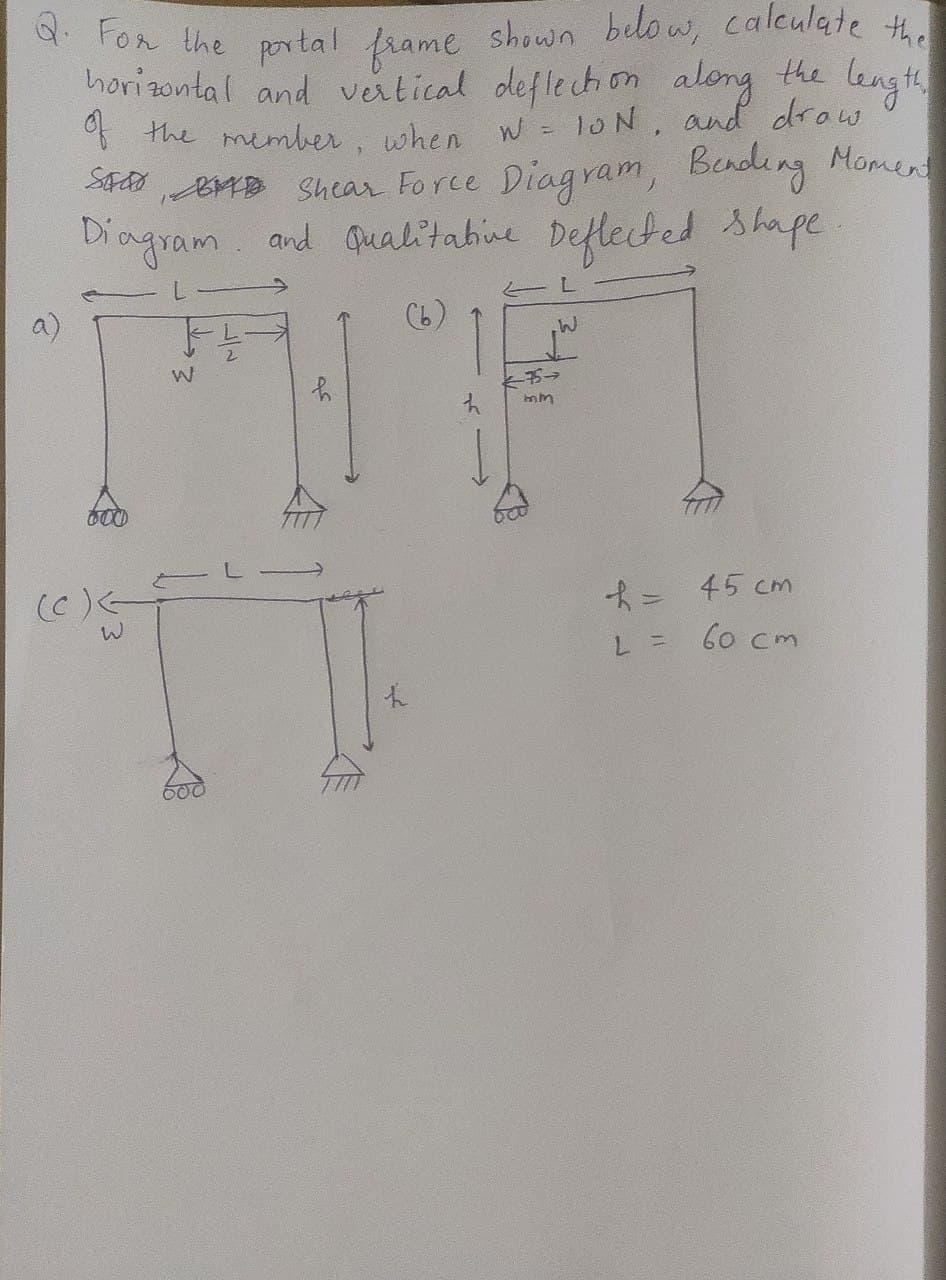 Q. For the portal frame shown below, calculate the
horizontal and vertical deflection along the length
of the member, when W = 10N, and draw
Shear Force Diagram, Bending Moment
Diagram. and Qualitative Deflected shape.
L
a)
L/2
W
h
(b)
L
h
W
75
mm
(c)
L
W
h
h = 45 cm
L = 60 cm